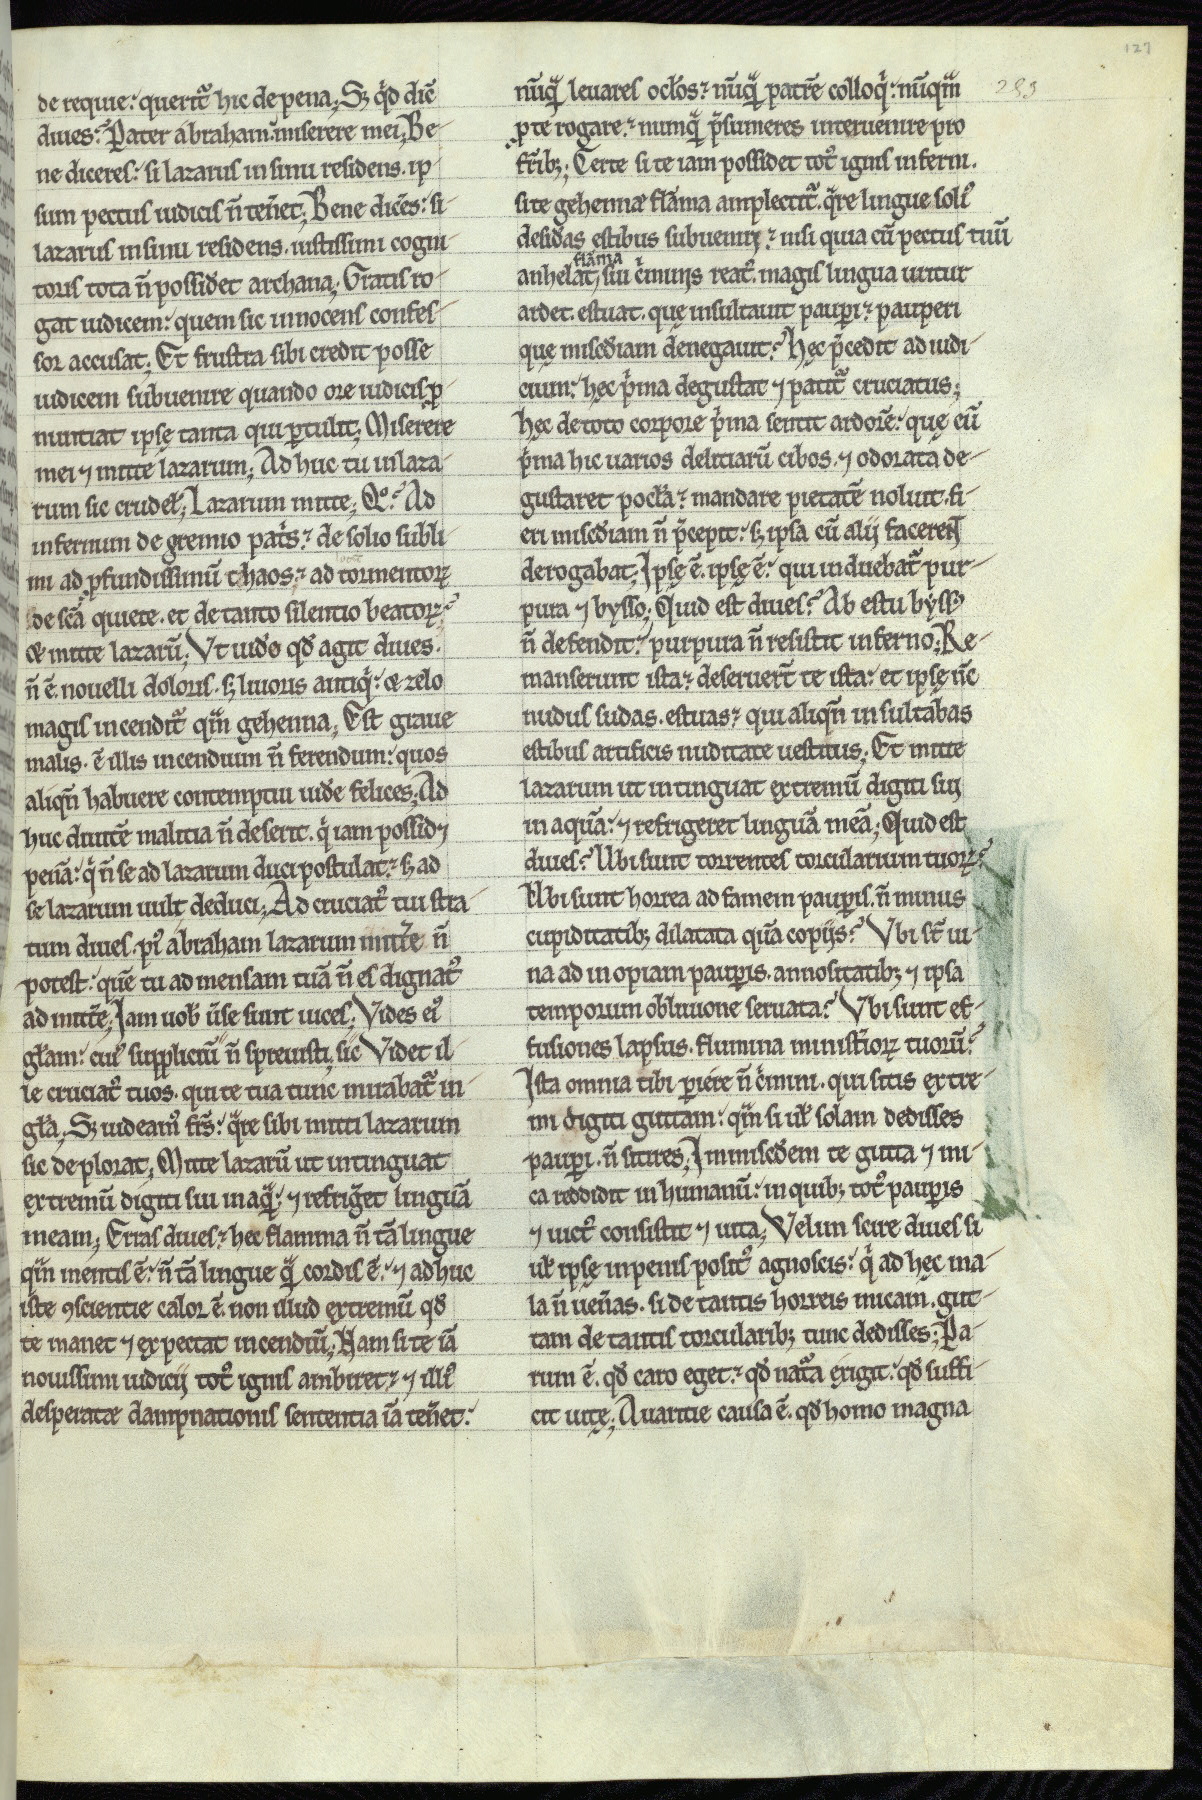 127
283
de requie: querit᷑ hic de pena; Sꝫ qͥd diē
diues? Pater abraham miserere mei; Be-
ne diceres: si lazarus in sinu residens. ip-
sum pectus iudicis n̄ ten̄et; Bene dic̄es: si-
lazarus in sinu residens. iustissimi cogni-
toris tota n̄ possidet archana; Gratis ro-
gat iudicem: quem sic innocens confes-
sor accusat; Et frustra sibi credit posse
iudicem subuenire quando ore iudicis ꝓ-
nuntiat ipse tanta qui ꝑtulit; Miserere
mei ⁊ mitte lazarum; Ad huc tu in laza-
rum sic crudel̃; Lazarum mitte; Qͦ? Ad
infernum de gremio patͥs? de solio subli-
mi ad ꝓfundissimū chaos? ad tormentoꝝ
de sc̄a quiete. et de tanto silentio beatoꝝ?
& mitte lazarū; Vt uid̄o qd̄ agit diues.
n̄ ē nouelli doloris. sꝫ liuoris antiqͥ: & zelo
magis incendit᷑ qͣm gehenna; Est graue
malis. ē illis incendium n̄ ferendum: quos
aliqn̄ habuere contemptui uid̄e felices; Ad
huc diuitē malitia n̄ deserit. qͥ iam possid⁊
penā: qͥ n̄ se ad lazarum duci postulat? sꝫ ad
se lazarum uult deduci; Ad cruciat᷒ tui stra-
tum diues. pr̄ abraham lazarum mittͤe n̄
potest: quē tu ad mensam tuā n̄ es dignat᷒
ad mittͤe; Iam uob̃ u̅se sunt uices; Vides ei᷒
gl̃am: cui᷒ suppliciū n̄ spreuisti, sic Videt il-
le cruciat᷒ tuos. qui te tua tunc mirabat᷑ in-
gl̃a; Sꝫ uideam᷒ fr̄s: qͣre sibi mitti lazarum
sic deplorat; Mitte lazarū ut intinguat
extremū digiti sui in aqͣ: ⁊ refrig̃et linguā
meam; Erras diues? hec flamma n̄ tā lingue
qͣm mentis ē: n̄ tā lingue qͣ cordis ē. ⁊ ad huc
iste ꝯscientie calor ē. non illud extremū qd̄
te manet ⁊ expectat incendiū; Nam si te iā
nouissimi iudicij tot᷒ ignis ambiret? ⁊ illi᷒
desperatæ dampnationis sententia iā ten̄et:
nūqͣ leuares ocl̃os? nūqͣ patrē colloqͥ: nūqͣm
ꝓ te rogare? numqͣ p̄sumeres interuenire pro
fr̄ibꝫ; Certe si te iam possidet tot᷒ ignis inferni.
si te gehennæ flāma amplectit᷑. qͣre lingue soli᷒
desid̃as estibus subueniri? nisi quia cū pectus tuū
flāma
anhelat, sui cͥminis reat᷒. magis lingua uritur
ardet. estuat. quę insultauit pauꝑi? pauperi
quę misc̄diam denegauit? Hęc p̄cedit ad iudi-
cium: hęc pͥma degustat ⁊ patit᷑ cruciatus;
hęc de toto corpore pͥma sentit ardorē: quę cū
pͥma hic uarios delitiarū cibos. ⁊ odorata de-
gustaret pocl̃a? mandare pietatē noluit. fi-
eri misc̄diam n̄ p̄cepit: sꝫ ipsa cū alij facerent
derogabat; Ipsę ē. ipsę ē: qui induebat᷑ pur-
pura ⁊ bysso; Quid est diues? Ab estu byss᷒
n̄ defendit: purpura n̄ resistit inferno; Re-
manserunt ista? deseruer̄t te ista: et ipsę nc̄
nudus sudas. estuas? qui aliqn̄ insultabas
estibus artificis nuditate uestitus; Et mitte
lazarum ut intinguat extremū digiti sui
in aquā: ⁊ refrigeret linguā meā; Quid est
diues? Ubi sunt torrentes torcularium tuoꝝ?
Ubi sunt horrea ad famem pauꝑis. n̄ minus
cupiditatibꝫ dilatata quā copijs? Vbi st̄ ui-
na ad inopiam pauꝑis. annositatibꝫ ⁊ ipsa
temporum obliuione seruata? Vbi sunt ef-
fusiones lapsus. flumina ministͥoꝝ tuorū?
Ista omnia tibi ꝑiere n̄ cͥmini. qui sitis extre-
mi digiti guttam: qͣm si ul̃ solam dedisses
pauꝑi. n̄ sitires; Immisc̄dem te gutta ⁊ mi-
ca reddidit inhumanū: in quibꝫ tot᷒ pauꝑis
⁊ uict᷒ consistit ⁊ uita; Velim scire diues si
ul̃ ipsę in penis posit᷒ agnoscis: qͥ ad hęc ma-
la n̄ uen̄as. si de tantis horreis micam. gut-
tam de tantis torcularibꝫ tunc dedisses; Pa-
rum ē. qd̄ caro eget? qd̄ natͣa exigit: qd̄ suffi-
cit uitę; Auaritie causa ē. qd̄ homo magna